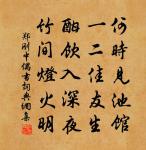 何時見池館
一二佳友生
酣飲入深夜
竹間燈火明
鄭剛中偶書詞典網集